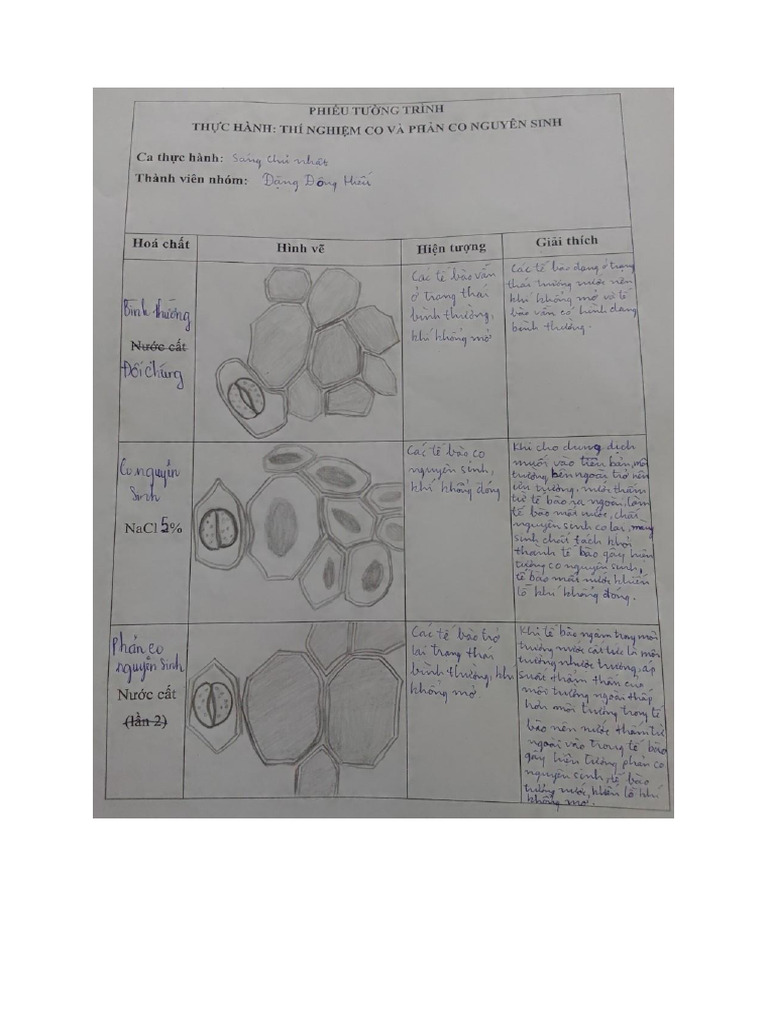 PHIẾU TƯỜNG TRÌNH
THỰC HÀNH: THÍ NGHIỆM CO VÀ PHẢN CO NGUYÊN SINH
Ca thực hành: Sáng Chủ nhật
Thành viên nhóm: Đặng Đông Hiếu
Hoá chất
Hình vẽ
Hiện tượng
Giải thích
Bình thường
Nước cất
Đối chứng
Các tế bào vẫn
ở trạng thái
bình thường,
khí khổng mở
Các tế bào đang ở trạng
thái trương nước nên
khí khổng mở và tế
bào vẫn có hình dạng
bình thường.
Co nguyên
sinh
NaCl 5%
Các tế bào co
nguyên sinh,
khí khổng đóng
Khi cho dung dịch
muối vào tiêu bản, môi
trường bên ngoài trở nên
ưu trương, nước thấm
từ tế bào ra ngoài, làm
tế bào mất nước, chất
nguyên sinh co lại, màng
sinh chất tách khỏi
thành tế bào gây hiện
tượng co nguyên sinh,
tế bào mất nước khiến
lỗ khí khổng đóng.
Phản co
nguyên sinh
Nước cất
(lần 2)
Các tế bào trở
lại trạng thái
bình thường, khí
khổng mở
Khi tế bào ngâm trong môi
trường nước cất tức là môi
trường nhược trương, áp
suất thẩm thấu của
môi trường ngoài thấp
hơn môi trường trong tế
bào nên nước thấm từ
ngoài vào trong tế bào
gây hiện tượng phản co
nguyên sinh, tế bào
trương nước, khiến lỗ khí
khổng mở.